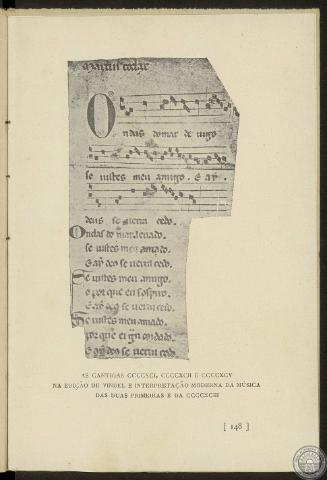 martin codax
Ondas do mar de uigo
se uistes meu amigo. E ay
deus se uerra cedo.
Ondas do mar leuado.
se uistes meu amado.
E ay deus se uerra cedo.
Se uistes meu amigo.
o por que eu sospiro.
E ay deus se uerra cedo.
Se uistes meu amado.
por que ei gran coidado.
E ay deus se uerra cedo
AS CANTIGAS CCCCXCI, CCCCXCII E CCCCXCV
NA EDIÇÃO DE VINDEL E INTERPRETAÇÃO MODERNA DA MÚSICA
DAS DUAS PRIMEIRAS E DA CCCCXCIII
[ 148 ]